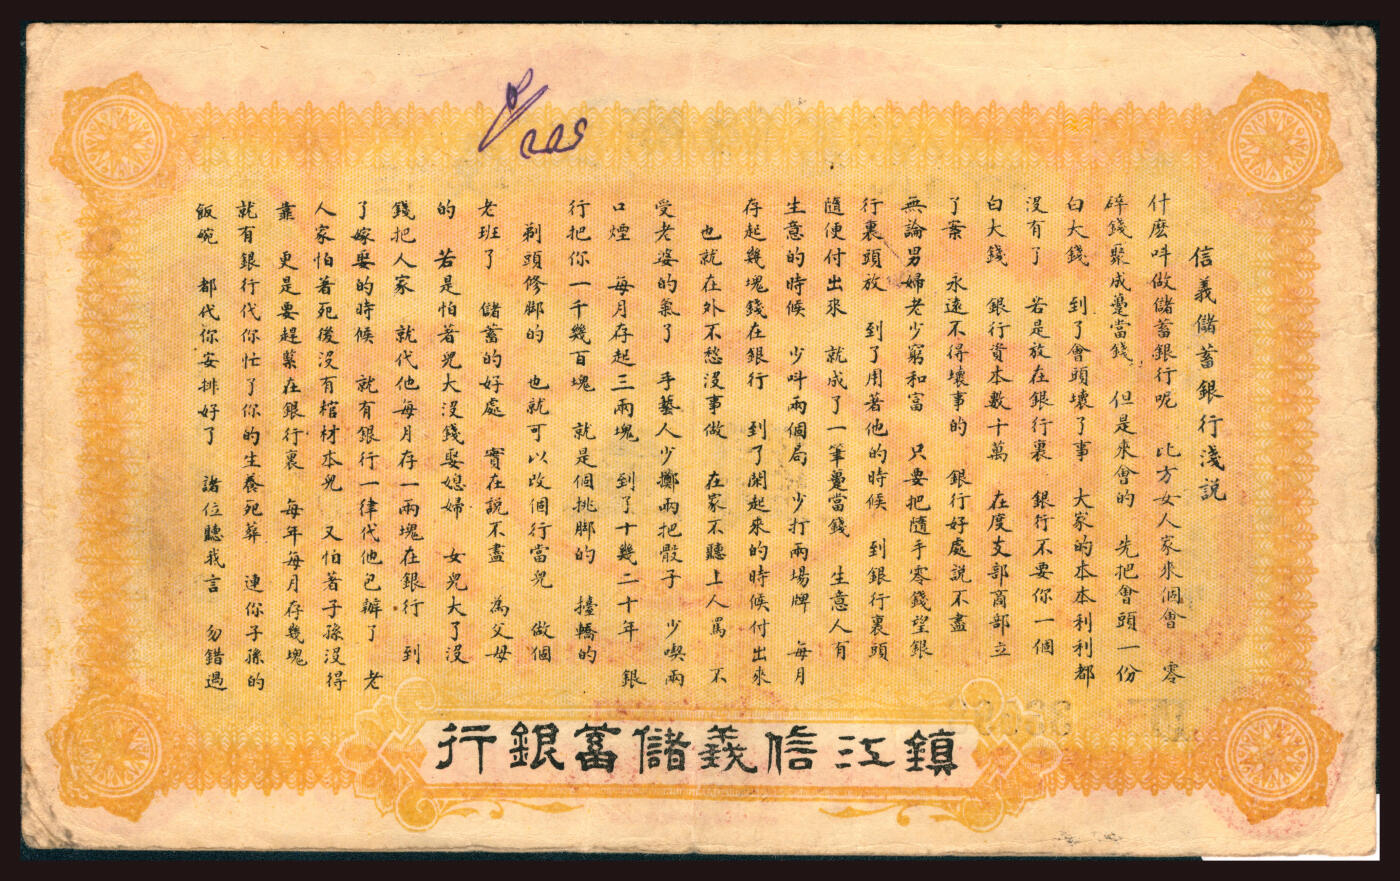 信義儲蓄銀行淺説
什麽呌做儲蓄銀行呢　比方女人家來個會　零
碎錢聚成躉當錢　但是來會的　先把會頭一份
白大錢　到了會頭壞了事　大家的本本利利都
沒有了　若是放在銀行裏　銀行不要你一個
白大錢　銀行貲本數十萬　在度支部商部立
了案　永遠不得壞事的　銀行好處説不盡
無論男婦老少窮和富　只要把隨手零錢望銀
行裏頭放　到了用著他的時候　到銀行裏頭
隨便付出來　就成了一筆躉當錢　生意人有
生意的時候　少呌兩個局　少打兩場牌　每月
存起幾塊錢在銀行　到了閑起來的時候付出來
也就在外不愁沒事做　在家不聽上人罵　不
受老婆的氣了　手藝人少擲兩把骰子　少喫兩
口煙　每月存起三兩塊　到了十幾二十年　銀
行把你一千幾百塊　就是個挑脚的　擡轎的
剃頭修脚的　也就可以改個行當兒　做個
老班了　儲蓄的好處　實在説不盡　為父母
的　若是怕著兒大沒錢娶媳婦　女兒大了沒
錢把人家　就代他每月存一兩塊在銀行　到
了嫁娶的時候　就有銀行一律代他已辦了　老
人家怕著死後沒有棺材本兒　又怕著子孫沒得
靠　更是要趕緊在銀行裏　每年每月存幾塊
就有銀行代你忙了你的生養死葬　連你子孫的
飯碗　都代你安排好了　諸位聽我言　勿錯過
鎮江信義儲蓄銀行